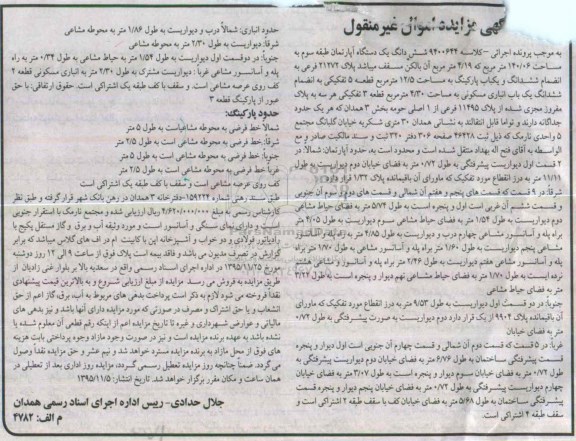 آگهی مزایده اموال غیرمنقول
به موجب پرونده اجرائی -کلاسه ۹۴۰۰۶۴۴ شش دانگ یک دستگاه آپارتمان طبقه سوم به
مساحت ۱۴۰/۰۶ متر مربع که ۲/۱۹ متر مربع آن بالکن مسقف میباشد پلاک ۲۱۳۷۲ فرعی به
انضمام ششدانگ و یکباب پارکینگ به مساحت ۱۲/۵ مترمربع قطعه ۵ تفکیکی به انضمام
ششدانگ یک باب انباری مسکونی به مساحت ۴/۳۰ مترمربع قطعه ۳ تفکیکی هر سه به پلاک
مفروز مجزی شده از پلاک ۱۱۴۹۵ فرعی از ۱ اصلی حومه بخش ۳ همدان که هر یک حدود
جداگانه دارند و تواما قابل انتقالند به نشانی همدان ۳۰ متری شکریه خیابان گلباغ مجتمع
۵ واحدی نارمک که ذیل ثبت ۴۶۴۲۸ صفحه ۳۰۶ دفتر ۳۲۰ ثبت و سند مالکیت صادر و مع
الواسطه به آقای فتح اله بهداد منتقل شده است و محدود است به، حدود آپارتمان: شمالاً: در
۲ قسمت اول دیواریست پیشرفتگی به طول ۰/۷۲ متر به فضای خیابان دوم دیواریست به طول
۱۱/۱۱ متر به درز انقطاع مورد تفکیک که ماورای آن باقیمانده پلاک ۱/۳۲ قرار دارد
شرقاً: در ۹ قسمت که قسمت های پنجم و هفتم آن شمالی و قسمت های دوم و سوم آن جنوبی
و قسمت ششم آن غربی است اول و پنجره است به طول ۵/۷۴ متر به فضای حیاط مشاعی
دوم دیواریست به طول ۱/۵۴ متر به فضای حیاط مشاعی سوم دیواریست به طول ۴/۰۵ متر
به راه پله و آسانسور مشاعی چهارم درب و دیواریست به طول ۴/۸۵ متر به راه پله و آسانسور
مشاعی پنجم دیواریست به طول ۱/۶۰ متر براه پله و آسانسور مشاعی به طول ۱/۷۰ متر براه
پله و آسانسور مشاعی هفتم دیواریست به طول ۲/۴۶ متر براه پله و آسانسور و مشاعی هشتم
نرده ایست به طول ۱/۷۰ متر به فضای حیاط مشاعی نهم دیوار و پنجره است به طول ۳/۲۲
متر به فضای حیاط مشاعی
جنوباً: در دو قسمت اول دیواریست به طول ۹/۵۳ متر به درز انقطاع مورد تفکیک که ماورای
آن باقیمانده پلاک ۹۹۰۴ از یک قرار دارد دوم دیواریست به صورت پیشرفتگی به طول ۰/۷۴
متر به فضای خیابان
غرباً: در ۵ قسمت که قسمت دوم آن شمالی و قسمت چهارم آن جنوبی است اول دیوار و پنجره
قسمت پیشرفتگی ساختمان به طول ۶/۷۶ متر به فضای خیابان دوم دیواریست پیشرفتگی به
طول ۰/۷۲ متر به فضای خیابان سوم دیوار و پنجره است به طول ۳/۰۷ متر به فضای خیابان
چهارم دیواریست پیشرفتگی به طول ۰/۷۲ متر به فضای خیابان پنجم دیوار و پنجره قسمت
پیشرفتگی ساختمان به طول ۵/۶۸ متر به فضای خیابان کف با سقف طبقه ۲ اشتراکی است و
سقف طبقه ۴ اشتراکی است.
حدود انباری: شمالاً درب و دیواریست به طول ۱/۸۶ متر به محوطه مشاعی
شرقاً: دیواریست به طول ۲/۳۰ متر به محوطه مشاعی
جنوباً: در دوقسمت اول دیواریست به طول ۱/۵۴ متر به حیاط مشاعی به طول ۰/۳۴ متر به راه
پله و آسانسور مشاعی غرباً : دیواریست مشترک به طول ۲/۳۰ متر به انباری مسکونی قطعه ۲
کف روی عرصه مشاعی است. و سقف با کف طبقه یک اشتراکی است. حقوق ارتفاقی: با حق
عبور از پارکینگ قطعه ۳
حدود پارکینگ:
شمالاً خط فرضی به محوطه مشاعیاست به طول ۵ متر
شرقاً: خط فرضی به محوطه مشاعی است به طول ۲/۵ متر
جنوباً: خط فرضی به محوطه مشاعی است به طول ۵ متر
غرباً خط فرضی به محوطه مشاعی است به طول ۲/۵ متر
کف روی عرصه مشاعی است و سقف با کف طبقه یک اشتراکی است
طبق سند رهنی شماره ۱۵۹۲۲۴-دفترخانه ۳ همدان در رهن بانک شهر قرار گرفته و طبق نظر
کارشناس رسمی به مبلغ ۴/۶۲۰/۰۰۰/۰۰۰ ریال ارزیابی شده و مجتمع نارمک با استقرار جنوبی
است و دارای نمای سنگی و آسانسور است و مورد وثیقه آب و برق و گاز مستقل پکیج با
رادیاتور فولادی و دو خواب و آشپزخانه اپن با کابینت ام دی اف های گلاس میباشد که برابر
گزارش در تصرف مدیون می باشد و فاقد بیمه است پلاک فوق از ساعت ۹ الی ۱۲ روز دوشنبه
مورخ ۱۳۹۵/۱۱/۲۵ در اداره اجرای اسناد رسمی واقع در سعدیه بالا بر بلوار غنی زادیان از
طریق مزایده به فروش می رسد. مزایده از مبلغ ارزیابی شروع و به بالاترین قیمت پیشنهادی
نقداً فروخته می شود لازم به ذکر است پرداخت بدهی های مربوط به آب، برق، گاز اعم از حق
انشعاب و یا حق اشتراک و مصرف در صورتی که مورد مزایده دارای آنها باشد و نیز بدهی های
مالیاتی و عوارض شهرداری و غیره تا تاریخ مزایده اعم از اینکه رقم قطعی آن معلوم شده یا
نشده باشد به عهده برنده مزایده است و نیز در صورت وجود مازاد وجوه پرداختی بابت هزینه
های فوق از محل مازاد به برنده مزایده مسترد خواهد شد و نیم عشر و حق مزایده نقداً وصول
می گردد. ضمناً چنانچه روز مزایده تعطیل رسمی گردد، مزایده روز اداری بعد از تعطیلی در
همان ساعت و مکان مقرر برگزار خواهد شد. تاریخ انتشار: ۱۳۹۵/۱۱/۵
جلال حدادی- رییس اداره اجرای اسناد رسمی همدان
م الف: ۴۷۸۲